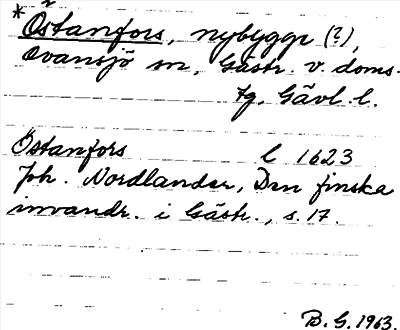 *Östanfors, nybygge (?),
Ovansjö sn, Gästr. v. doms-
tg, Gävl. l.
Östanfors l 1623
Joh. Nordlander, Den finska
invandr. i Gästr., s. 17.
B. G. 1963.